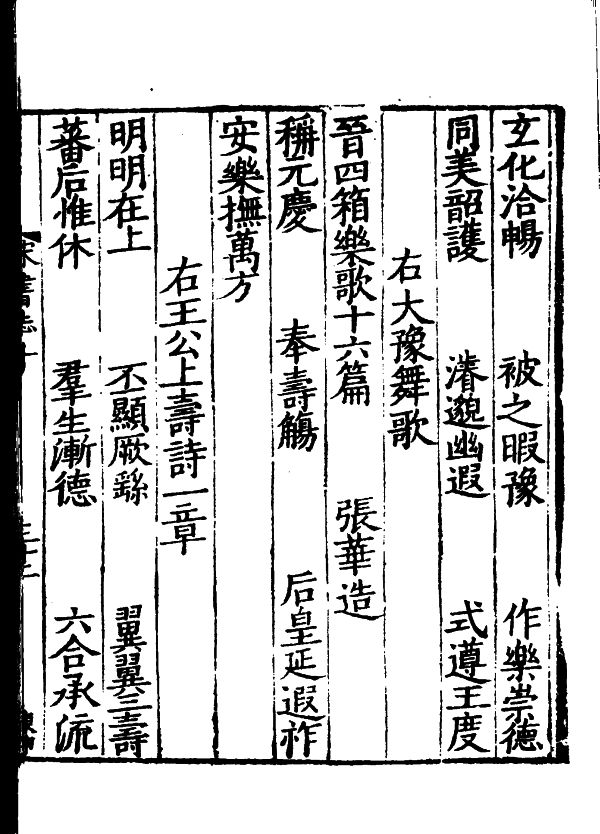 玄化洽暢　被之暇豫　作樂崇德
同美韶護　濬邈幽遐　式遵王度
右大豫舞歌
晉四箱樂歌十六篇　張華造
稱元慶　奉壽觴　后皇延遐祚
安樂撫萬方
右王公上壽詩一章
明明在上　丕顯厥繇　翼翼三壽
蕃后惟休　羣生漸德　六合承流